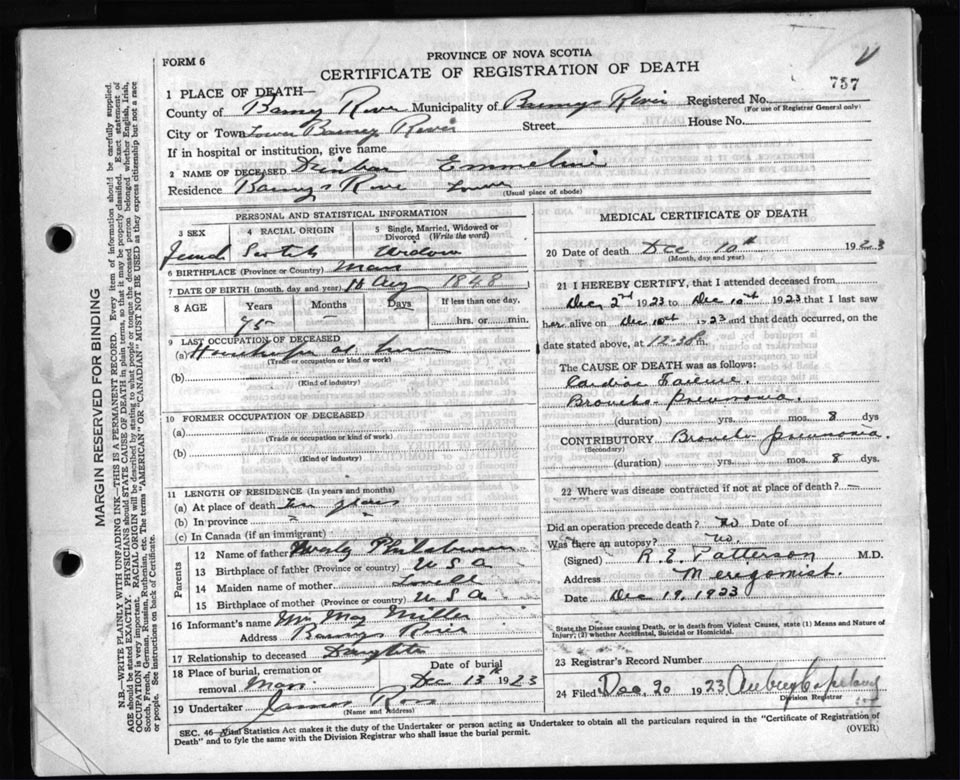 FORM 6
PROVINCE OF NOVA SCOTIA
CERTIFICATE OF REGISTRATION OF DEATH
757
1 PLACE OF DEATH—
County of Barney River Municipality of Barneys River Registered No.
(For use of Registrar General only)
City or Town Lower Barney River Street House No.
If in hospital or institution, give name
2 NAME OF DECEASED Emmeline
Residence Barneys River Lower
(Usual place of abode)
PERSONAL AND STATISTICAL INFORMATION
3 SEX
4 RACIAL ORIGIN
5 Single, Married, Widowed or Divorced (Write the word)
Female Scotch Widow
6 BIRTHPLACE (Province or Country) Mass
7 DATE OF BIRTH (month, day and year) Aug 1848
8 AGE Years Months Days If less than one day,
75 — hrs. or min.
9 LAST OCCUPATION OF DECEASED
(a) at
(Trade or occupation or kind or work)
(b)
(Kind of industry)
10 FORMER OCCUPATION OF DECEASED
(a)
(Trade or occupation or kind of work)
(b)
(Kind of industry)
11 LENGTH OF RESIDENCE (In years and months)
(a) At place of death years
(b) In province
(c) In Canada (if an immigrant)
Parents
12 Name of father
13 Birthplace of father (Province or country) U S A
14 Maiden name of mother Lovell
15 Birthplace of mother (Province or country) U S A
16 Informant's name Mrs May Miller
Address Barneys River
17 Relationship to deceased Daughter
18 Place of burial, cremation or removal Date of burial
Dec 13th 1923
19 Undertaker James Ross
(Name and Address)
MEDICAL CERTIFICATE OF DEATH
20 Date of death Dec 10th 1923
(Month, day and year)
21 I HEREBY CERTIFY, that I attended deceased from
Dec 2nd 1923 to Dec 10th 1923 that I last saw
her alive on Dec 10th 1923 and that death occurred, on
date stated above, at 12-30 m.
The CAUSE OF DEATH was as follows:
Cardiac Failure.
Broncho-pneumonia.
(duration) yrs. mos. 8 dys
CONTRIBUTORY Broncho pneumonia.
(Secondary)
(duration) yrs. mos. 8 dys.
22 Where was disease contracted if not at place of death? —
Did an operation precede death? No Date of
Was there an autopsy? No.
(Signed) R. E. Patterson M.D.
Address Merigomish.
Date Dec 19, 1923
State the Disease causing Death, or in death from Violent Causes, state (1) Means and Nature of Injury; (2) whether Accidental, Suicidal or Homicidal.
23 Registrar's Record Number
24 Filed Dec 20 1923 Aubrey Copeland
Division Registrar
SEC. 46—Vital Statistics Act makes it the duty of the Undertaker or person acting as Undertaker to obtain all the particulars required in the "Certificate of Registration of
Death" and to fyle the same with the Division Registrar who shall issue the burial permit.
(OVER)
MARGIN RESERVED FOR BINDING
N.B.—WRITE PLAINLY WITH UNFADING INK—THIS IS A PERMANENT RECORD. Every item of information should be carefully supplied.
AGE should be stated EXACTLY. PHYSICIANS should STATE CAUSE OF DEATH in plain terms, so that it may be properly classified. Exact statement of
OCCUPATION is very important. RACIAL ORIGIN will be described by stating to what people or tongue the deceased person belonged whether English, Irish,
Scotch, French, German, Russian, Ruthenian, etc. The terms "AMERICAN" OR "CANADIAN" MUST NOT BE USED as they express citizenship but not a race
or people. See instructions on back of Certificate.